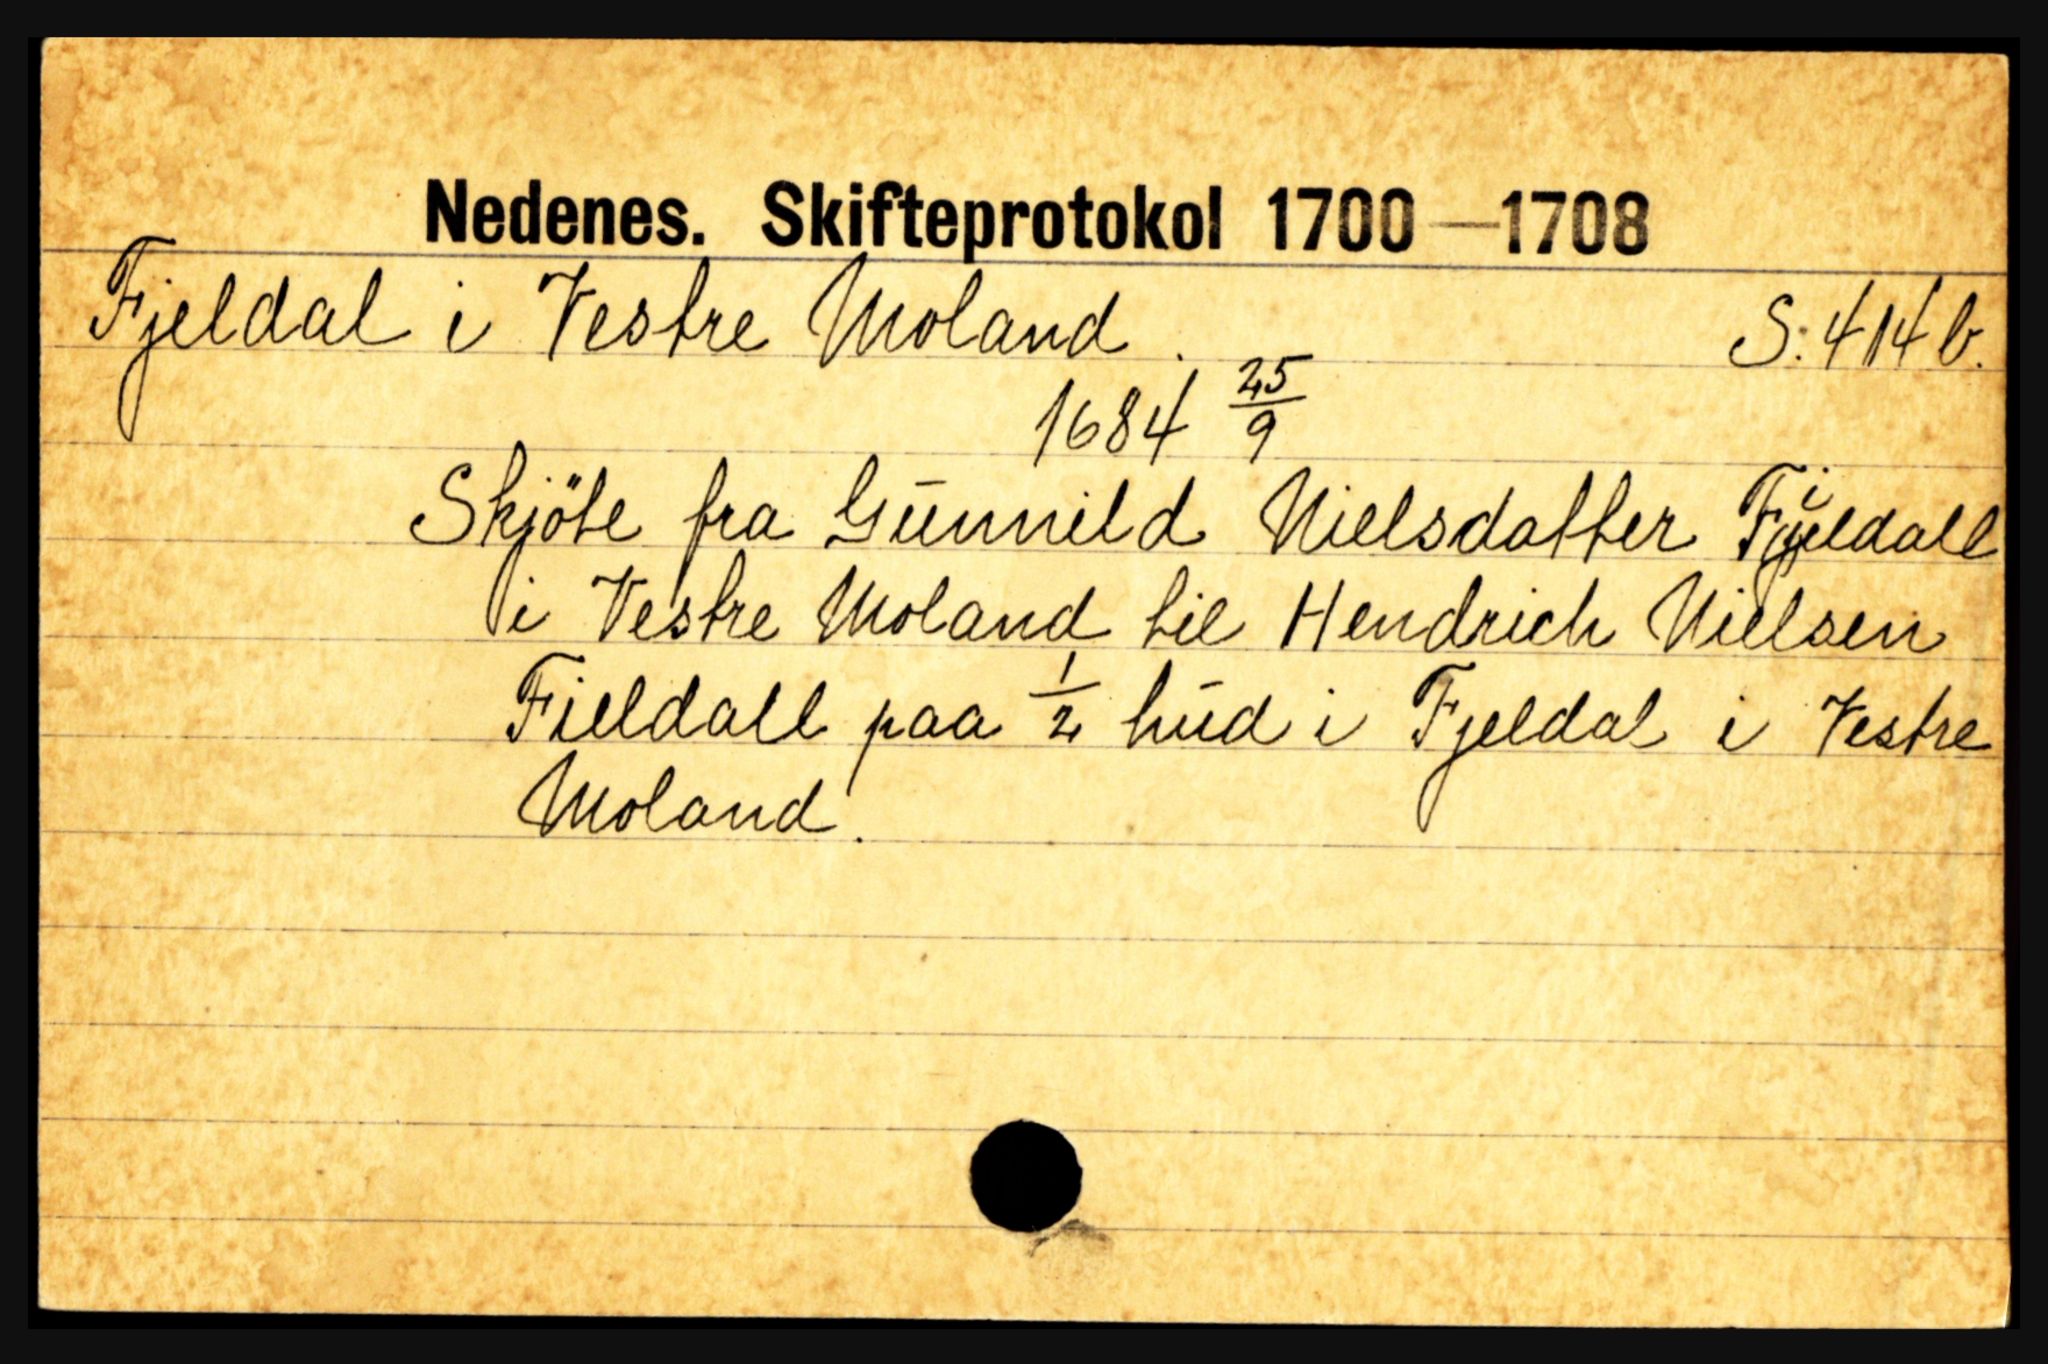 Nedenes. Skifteprotokol 1700—1708
Fjeldal i Vestre Moland. S: 414 b.
1684 25/9
Skjöte fra Gunnild Nielsdatter Fieldall
i Vestre Moland til Hendrich Nielsen
Fieldall paa 1/2 hud i Fjeldal i Vestre
Moland.